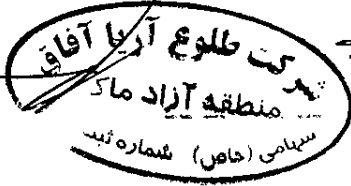 شرکت طلوع آریا آفاق
منطقه آزاد ماک
سهامی (خاص) شماره ثبت